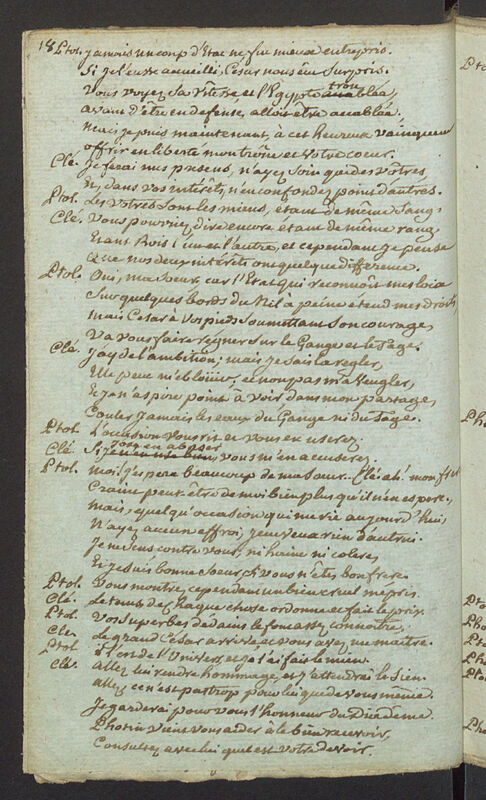 18 Ptol. jamais un coup d'Etat ne fut mieux entrepris.
Si je l'eusse accueilli, Cesar nous eut surpris.
Vous voyez sa vitesse et l'Egypte troublée,
avant d'être en defense, alloit être accablée.
mais je puis maintenant, à cet heureux vainqueur
offrir en liberté mon trône et votre coeur.
Clé. Je ferai mes présens, n'ayez soin que des vôtres,
Et, dans vos intérêts, n'en confondez point d'autres.
Ptol. Les vôtres sont les miens, étant de même sang.
Clé. Vous pourriez dire encore étant de même rang,
Etant Rois l'un et l'autre, et cependant je pense
Que nos deux intérêts ont quelque difference.
Ptol. Oui, ma soeur, car l'Etat qui reconnoît mes loix
Sur quelques bords du Nil à peine étend mes droits,
mais Cesar à vos pieds soumettant son courage,
Va vous faire régner sur le Gange et le Tage.
Clé. J'ay de l'ambition; mais je sais la régler,
Elle peut m'éblouir, et non pas m'aveugler,
Et je n'aspire point à voir, dans mon partage,
Couler jamais les eaux du Gange ni du Tage.
Ptol. L'occasion vous rit et vous en userez.
Clé. Si j'ose en abuser, vous m'en accuserez.
Ptol. moi, j'espere beaucoup de ma soeur. Clé. ah! mon frere
Craint peut-être de moi bien plus qu'il n'en espere,
mais, quelqu'occasion qui me rie aujourd'hui,
N'ayez aucun effroi, je ne veux rien d'autrui.
Je ne sens contre vous, ni haine ni colere,
Et je suis bonne soeur, si vous n'êtes bon frere.
Ptol. Vous montrez, cependant un bien cruel mepris.
Clé. Le tems de chaque chose ordonne et fait le prix.
Ptol. Vos superbes dedains le font assez connoître,
Clé. Le grand Cesar arrive, et vous avez un maître.
Ptol. Il l'est de l'Univers, et je l'ai fait le mien.
Clé. allez lui rendre hommage, et j'attendrai le sien.
allez ce n'est pas trop pour lui que de vous même.
Je garderai pour vous l'honneur du Diadême
Photin vient vous aider à le bien recevoir,
Consultez avec lui quel est votre devoir.